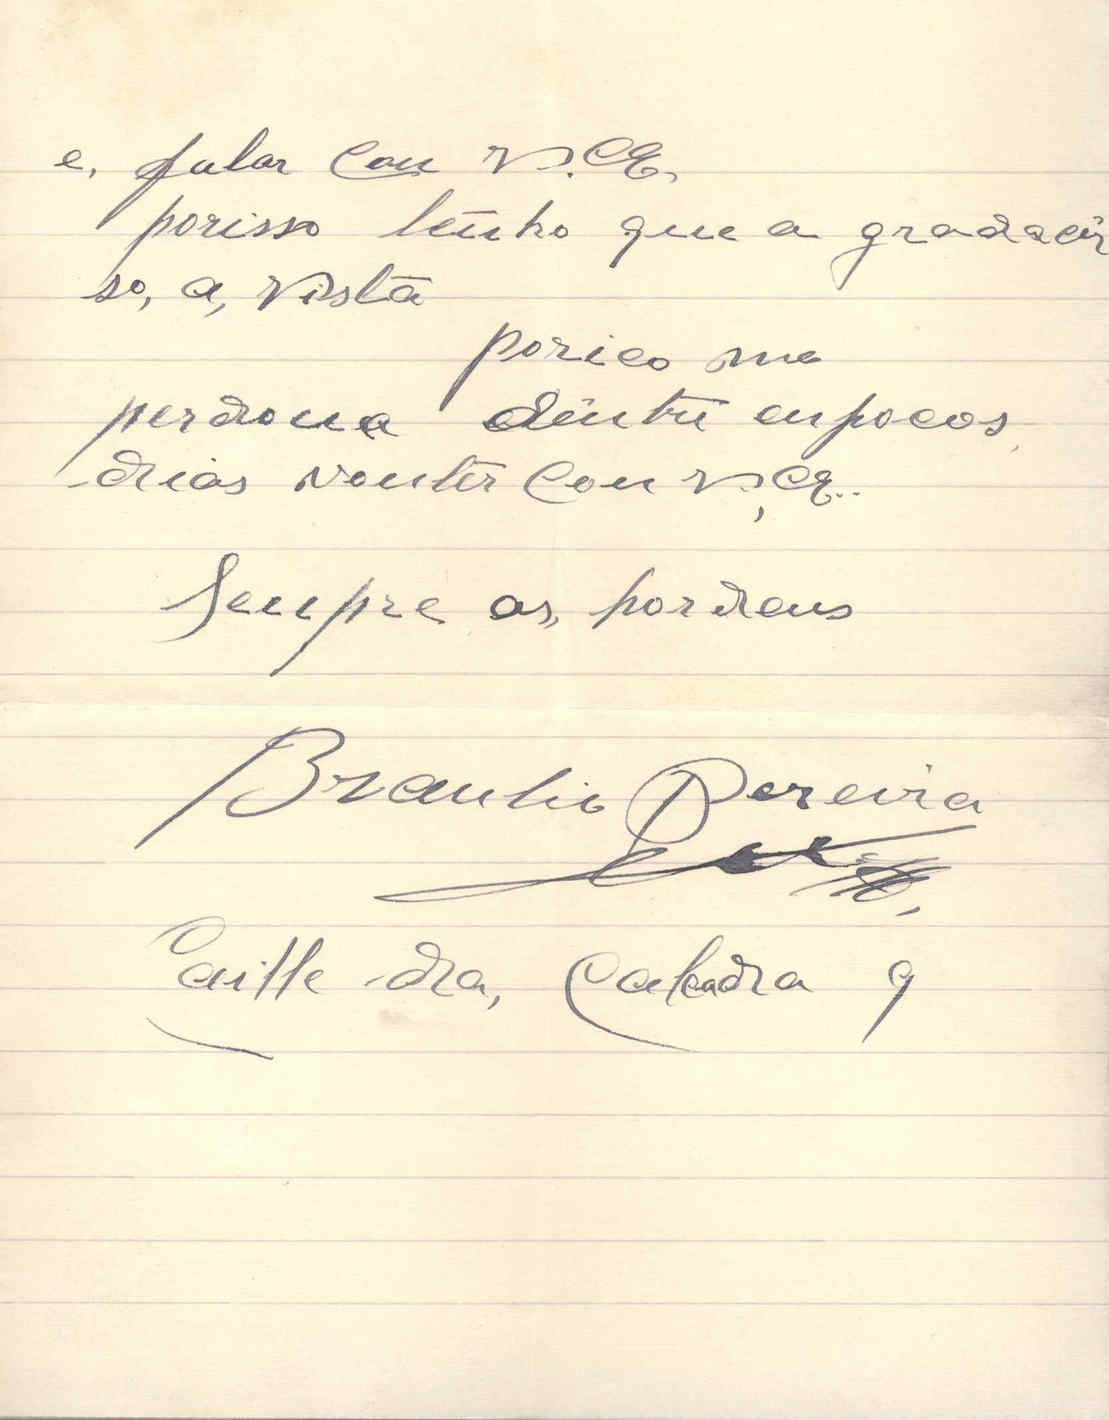 e, falar Con V.Ex.
porisso tenho que a gradecir
so, a, vista
porico me
perdona dentri en pocos
dias vonter Con V, Ex..
Sempre as, hordens
Braulio Pereira
Caille da, Caleadra 9